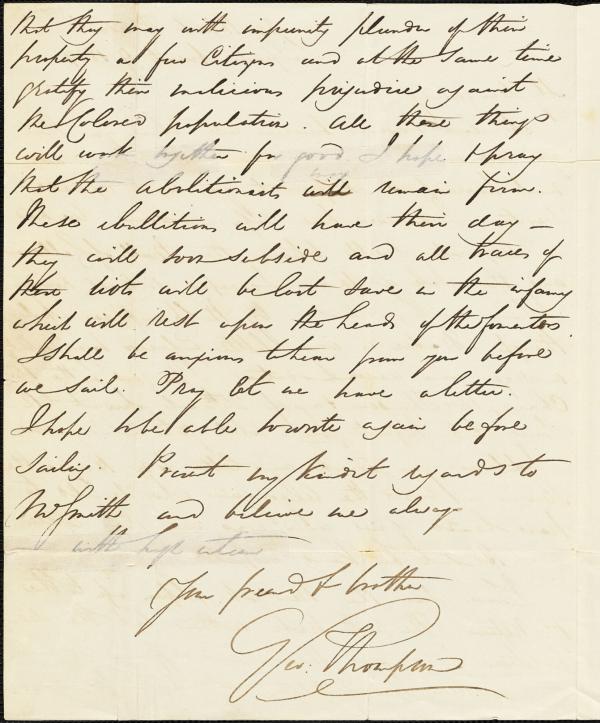 that they may with impunity plunder of their
property a few Citizens and at the same time
gratify their malicious prejudice against
the Colored population. All these things
will work together for good I hope & pray
may
that the abolitionists will remain firm.
These ebullitions will have their day —
they will soon subside and all traces of
these riots will be lost save in the infamy
which will rest upon the heads of the fomenters.
I shall be anxious to hear from you before
we sail. Pray let me have a letter.
I hope to be able to write again before
sailing. Present my kindest regards to
Smith and believe me always
with high esteem
Your friend & brother
Geo: Thompson